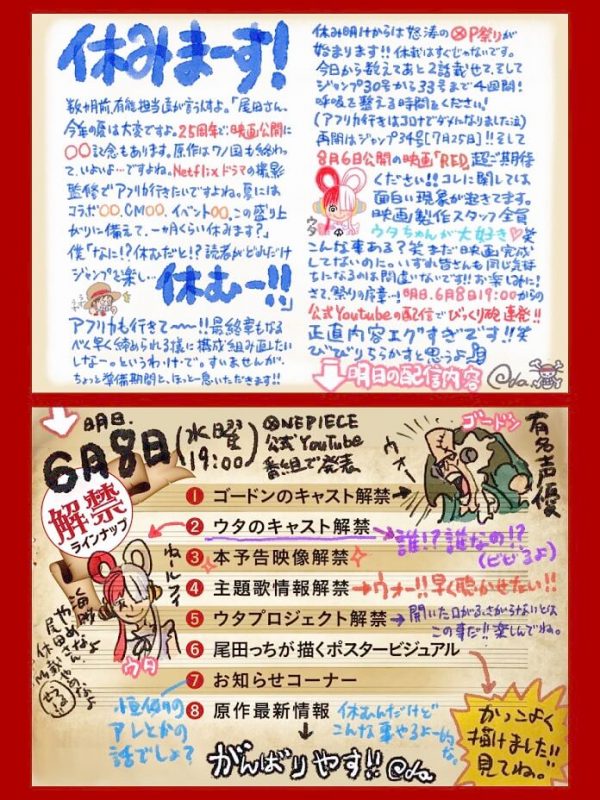 休みまーす!
数ヶ月前、有能担当達が言うすよ。「尾田さん、
今年の夏は大変ですよ。25周年で、映画公開に
〇〇記念もあります。原作はワノ国も終わっ
て、いよいよ…ですよね。Netflixドラマの撮影
監修でアフリカ行きたいですよね。夏には
コラボ〇〇、CM〇〇、イベント〇〇、この盛り上
がりに備えて、一ヶ月くらい休みます?」
僕「なに!?休むだと!?読者がどれだけ
ジャンプを楽し…
休むー!!」
アフリカも行きて〜〜!!最終章もなる
べく早く締められる様に構成組み直したい
しなー。というわけで。すいませんが、
ちょっと準備期間と、ほっと一息いただきます!!
休み明けからは怒涛のOP祭りが
始まります!!休載はすぐじゃないです。
今日から数えてあと2話載せて、そして
ジャンプ30号から33号まで4週間!
呼吸を整える時間をください!
(アフリカ行きはコロナでダメになりました泣)
再開はジャンプ34号[7月25日]!!そして
8月6日公開の映画「RED」超ご期待
ください!!コレに関しては
面白い現象が起きてます。
映画製作スタッフ全員
ウタちゃんが大好き♡笑
ウタ
こんな事ある?笑 まだ映画完成
してないのに。いずれ皆さんも同じ気持
ちになるのは間違いないです!!お楽しみに!
さて、祭りの序章…!明日、6月8日19:00からの
公式Youtubeの配信でびっくり砲連発!!
正直内容エグすぎです!!笑
びびりちらかすと思うよ
明日の配信内容
明日、
6月8日(水曜19:00)
ONEPIECE
公式YouTube
番組で発表
ゴードン
有名声優
ウォー!
解禁
ラインナップ
1 ゴードンのキャスト解禁
2 ウタのキャスト解禁
誰!?誰なの!?
(ビビるよ)
3 本予告映像解禁
4 主題歌情報解禁
ウォー!!早く聴かせたい!!
5 ウタプロジェクト解禁
開いた口がふさがらないとは
この事だ!!楽しんでね。
6 尾田っちが描くポスタービジュアル
7 お知らせコーナー
8 原作最新情報
ねールフィ
ウタ
海賊
やめなよ
尾田さん
休載やめなよ
恒例の
アレとかの
話でしょ?
休むんだけど
こんな事やるよー的な。
かっこよく
描けました!!
見てね。
がんばりやす!!